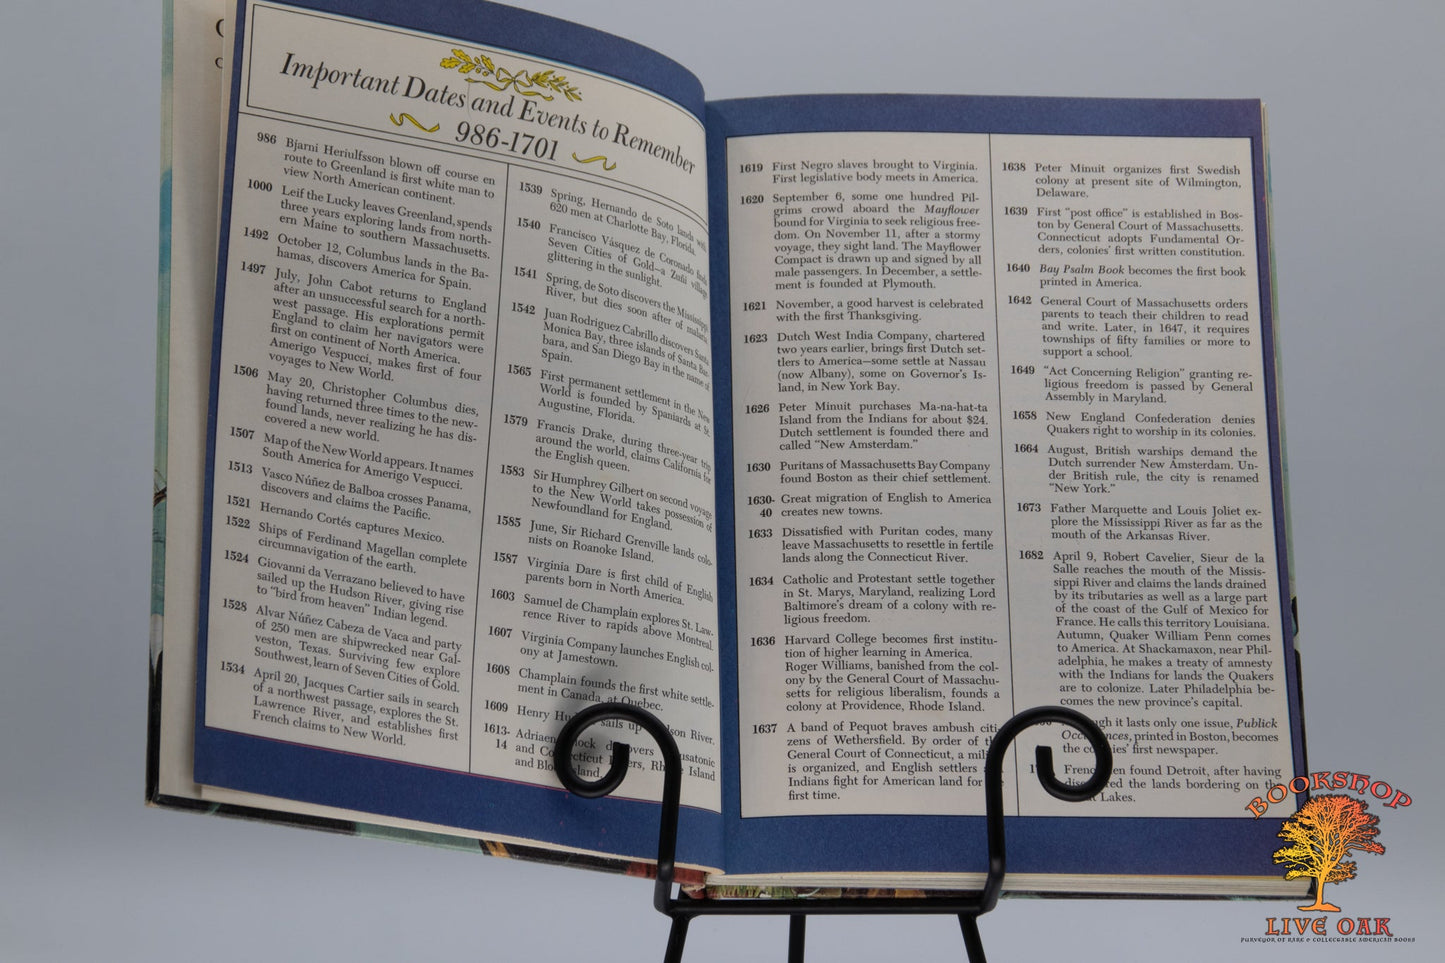 Important Dates and Events to Remember
986-1701
986 Bjarni Heriulfsson blown off course en
route to Greenland is first white man to
view North American continent.
1000 Leif the Lucky leaves Greenland, spends
three years exploring lands from north-
ern Maine to southern Massachusetts.
1492 October 12, Columbus lands in the Ba-
hamas, discovers America for Spain.
1497 July, John Cabot returns to England
after an unsuccessful search for a north-
west passage. His explorations permit
England to claim her navigators were
first on continent of North America.
Amerigo Vespucci, makes first of four
voyages to New World.
1506 May 20, Christopher Columbus dies,
having returned three times to the new-
found lands, never realizing he has dis-
covered a new world.
1507 Map of the New World appears. It names
South America for Amerigo Vespucci.
1513 Vasco Núñez de Balboa crosses Panama,
discovers and claims the Pacific.
1521 Hernando Cortés captures Mexico.
1522 Ships of Ferdinand Magellan complete
circumnavigation of the earth.
1524 Giovanni da Verrazano believed to have
sailed up the Hudson River, giving rise
to "bird from heaven" Indian legend.
1528 Alvar Núñez Cabeza de Vaca and party
of 250 men are shipwrecked near Gal-
veston, Texas. Surviving few explore
Southwest, learn of Seven Cities of Gold.
1534 April 20, Jacques Cartier sails in search
of a northwest passage, explores the St.
Lawrence River, and establishes first
French claims to New World.
1539 Spring, Hernando de Soto lands with
620 men at Charlotte Bay, Florida.
1540 Francisco Vásquez de Coronado finds
Seven Cities of Gold—a Zuñi village
glittering in the sunlight.
1541 Spring, de Soto discovers the Mississippi
River, but dies soon after of malaria.
1542 Juan Rodriguez Cabrillo discovers Santa
Monica Bay, three islands of Santa Bar-
bara, and San Diego Bay in the name of
Spain.
1565 First permanent settlement in the New
World is founded by Spaniards at St.
Augustine, Florida.
1579 Francis Drake, during three-year trip
around the world, claims California for
the English queen.
1583 Sir Humphrey Gilbert on second voyage
to the New World takes possession of
Newfoundland for England.
1585 June, Sir Richard Grenville lands colo-
nists on Roanoke Island.
1587 Virginia Dare is first child of English
parents born in North America.
1603 Samuel de Champlain explores St. Law-
rence River to rapids above Montreal.
1607 Virginia Company launches English col-
ony at Jamestown.
1608 Champlain founds the first white settle-
ment in Canada, at Quebec.
1609 Henry sails up River.
1613- Adriaen
14 and Rivers, Island
and Island.
1619 First Negro slaves brought to Virginia.
First legislative body meets in America.
1620 September 6, some one hundred Pil-
grims crowd aboard the Mayflower
bound for Virginia to seek religious free-
dom. On November 11, after a stormy
voyage, they sight land. The Mayflower
Compact is drawn up and signed by all
male passengers. In December, a settle-
ment is founded at Plymouth.
1621 November, a good harvest is celebrated
with the first Thanksgiving.
1623 Dutch West India Company, chartered
two years earlier, brings first Dutch set-
tlers to America—some settle at Nassau
(now Albany), some on Governor's Is-
land, in New York Bay.
1626 Peter Minuit purchases Ma-na-hat-ta
Island from the Indians for about $24.
Dutch settlement is founded there and
called "New Amsterdam."
1630 Puritans of Massachusetts Bay Company
found Boston as their chief settlement.
1630- Great migration of English to America
40 creates new towns.
1633 Dissatisfied with Puritan codes, many
leave Massachusetts to resettle in fertile
lands along the Connecticut River.
1634 Catholic and Protestant settle together
in St. Marys, Maryland, realizing Lord
Baltimore's dream of a colony with re-
ligious freedom.
1636 Harvard College becomes first institu-
tion of higher learning in America.
Roger Williams, banished from the col-
ony by the General Court of Massachu-
setts for religious liberalism, founds a
colony at Providence, Rhode Island.
1637 A band of Pequot braves ambush citi-
zens of Wethersfield. By order of the
General Court of Connecticut, a
is organized, and English settlers
Indians fight for American land for
first time.
1638 Peter Minuit organizes first Swedish
colony at present site of Wilmington,
Delaware.
1639 First "post office" is established in Bos-
ton by General Court of Massachusetts.
Connecticut adopts Fundamental Or-
ders, colonies' first written constitution.
1640 Bay Psalm Book becomes the first book
printed in America.
1642 General Court of Massachusetts orders
parents to teach their children to read
and write. Later, in 1647, it requires
townships of fifty families or more to
support a school.
1649 "Act Concerning Religion" granting re-
ligious freedom is passed by General
Assembly in Maryland.
1658 New England Confederation denies
Quakers right to worship in its colonies.
1664 August, British warships demand the
Dutch surrender New Amsterdam. Un-
der British rule, the city is renamed
"New York."
1673 Father Marquette and Louis Joliet ex-
plore the Mississippi River as far as the
mouth of the Arkansas River.
1682 April 9, Robert Cavelier, Sieur de la
Salle reaches the mouth of the Missis-
sippi River and claims the lands drained
by its tributaries as well as a large part
of the coast of the Gulf of Mexico for
France. He calls this territory Louisiana.
Autumn, Quaker William Penn comes
to America. At Shackamaxon, near Phil-
adelphia, he makes a treaty of amnesty
with the Indians for lands the Quakers
are to colonize. Later Philadelphia be-
comes the new province's capital.
it lasts only one issue, Publick
printed in Boston, becomes
the first newspaper.
found Detroit, after having
the lands bordering on the
Lakes.
BOOKSHOP
LIVE OAK
PURVEYOR OF RARE & COLLECTABLE AMERICAN BOOKS